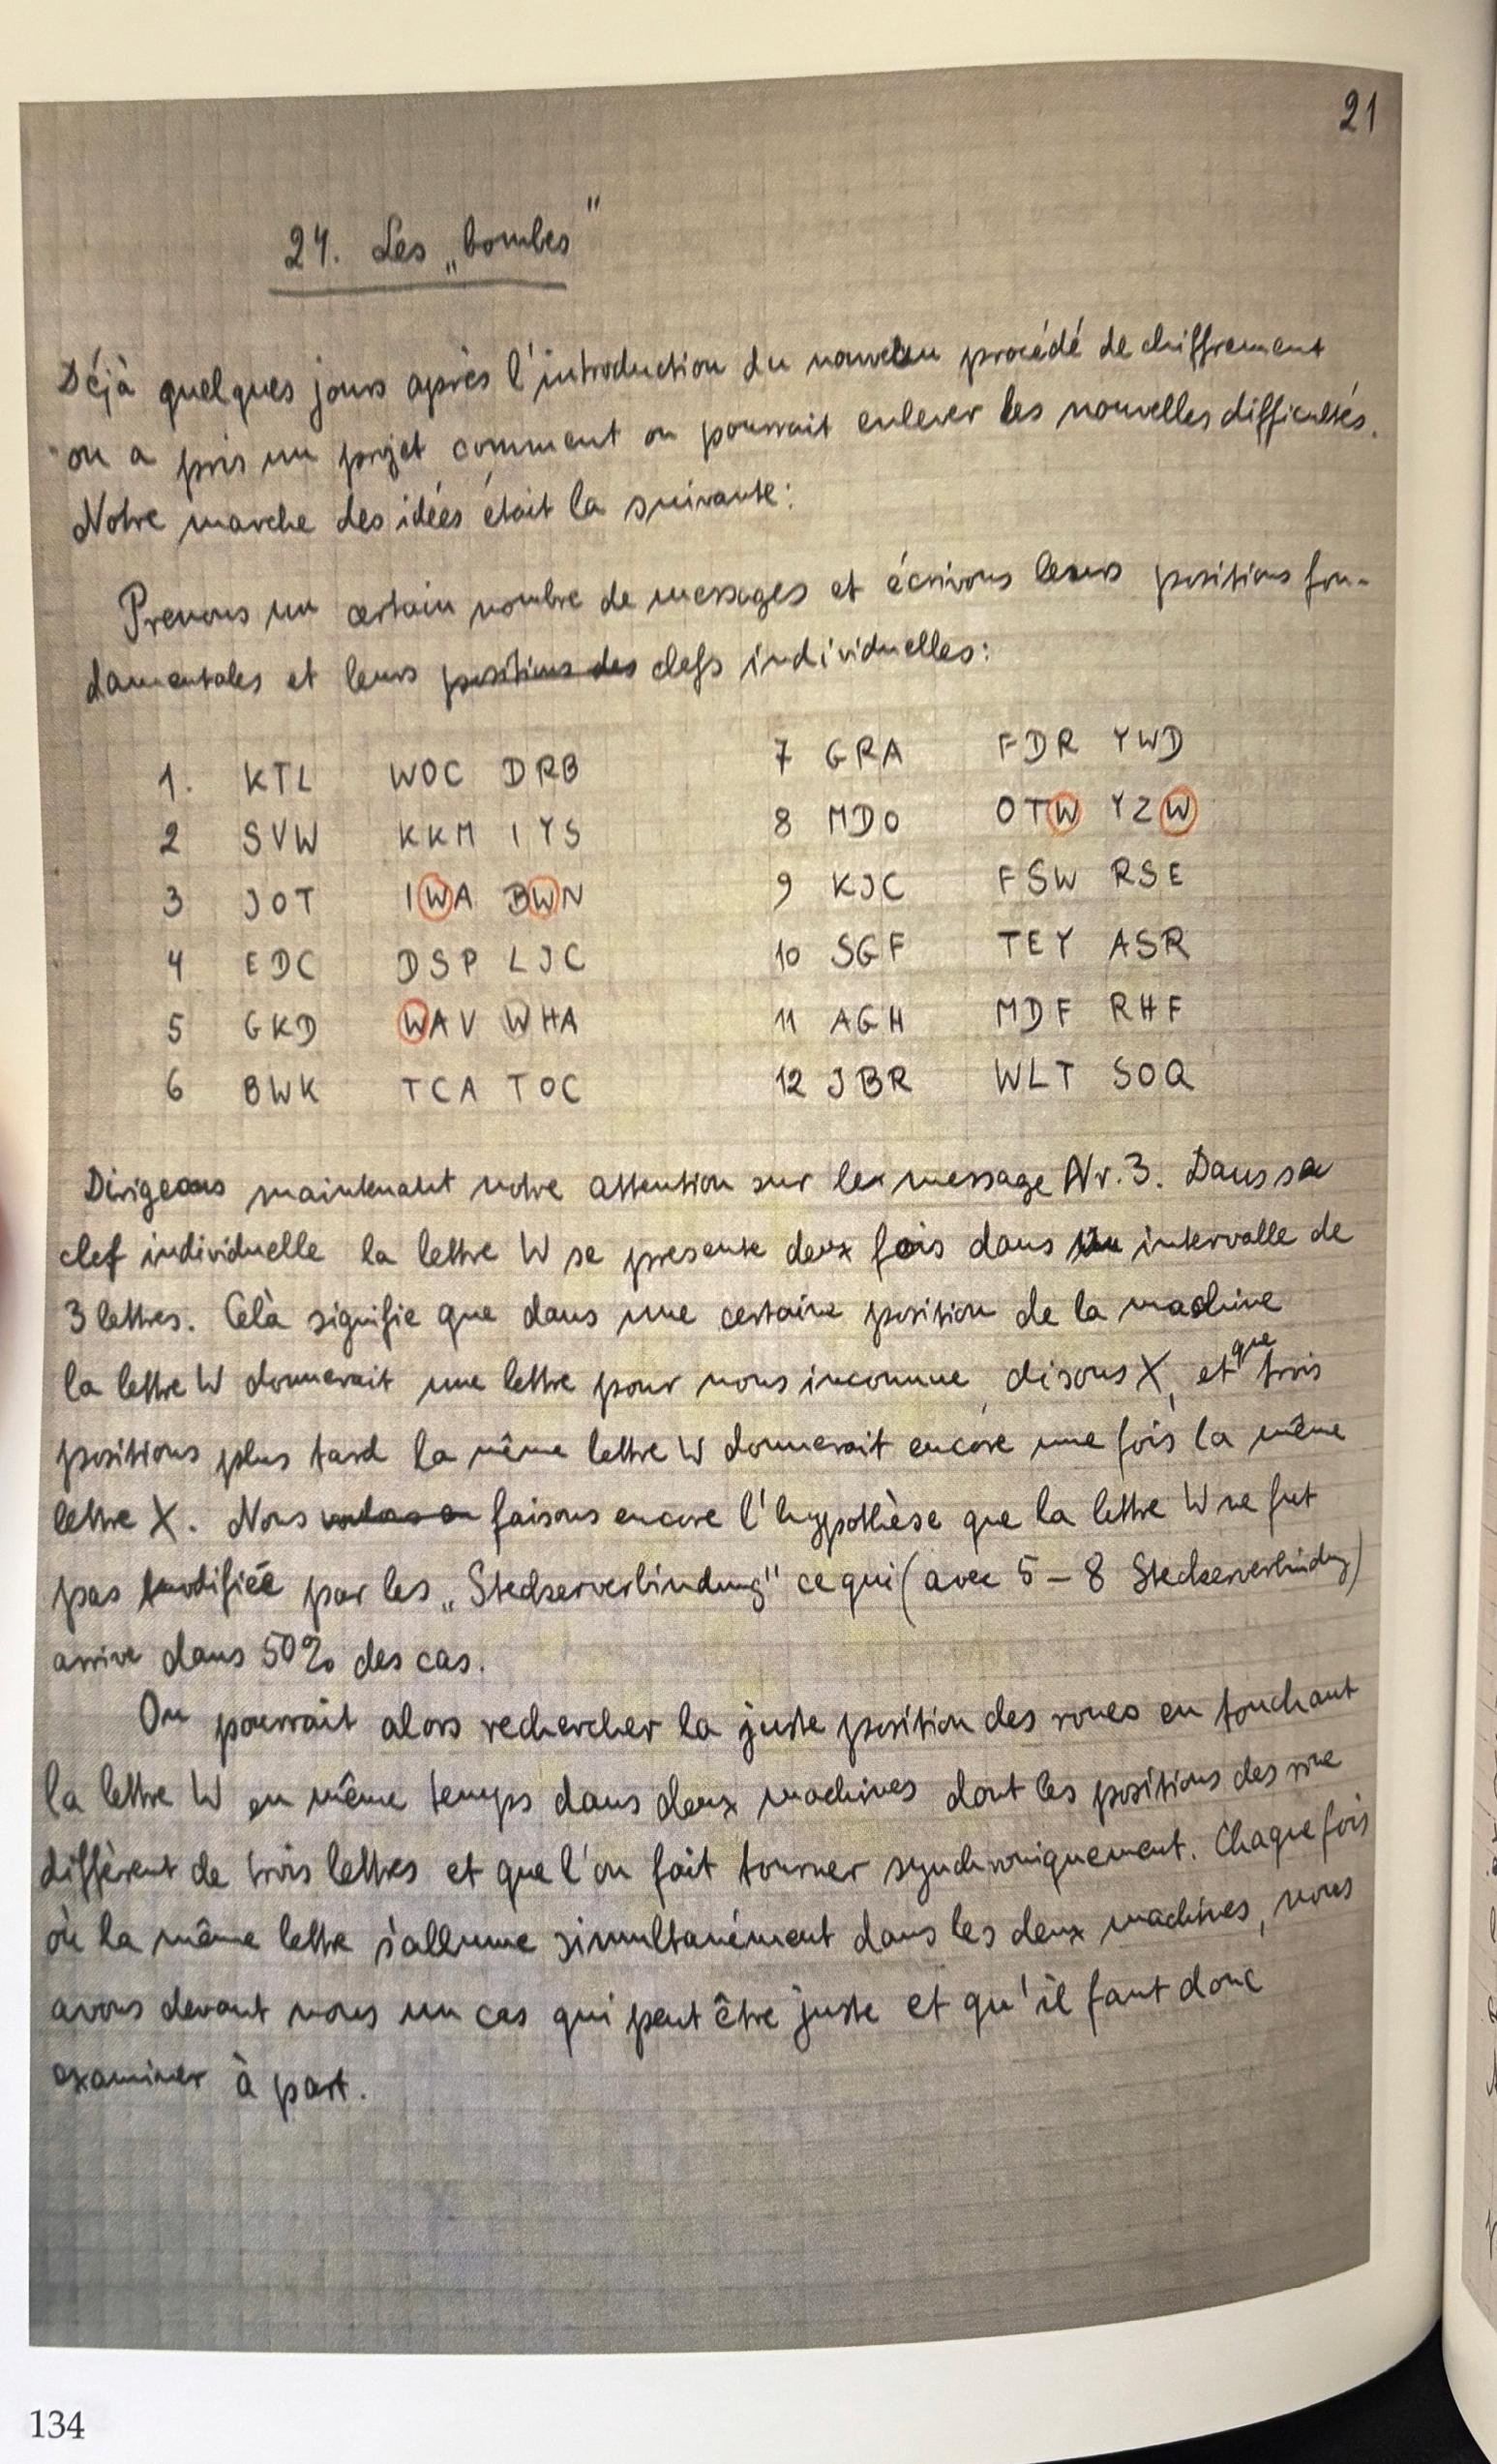 21
24. Les „bombes"
Déjà quelques jours après l'introduction du nouveau procédé de chiffrement
on a pris un projet comment on pourrait enlever les nouvelles difficultés.
Notre marche des idées était la suivante:
Prenons un certain nombre de messages et écrivons leurs positions fon-
damentales et leurs positions des clefs individuelles:
1. KTL WOC DRB
2 SVW KKM IYS
3 JOT IWA BWN
4 EDC DSP LJC
5 GKD WAV WHA
6 BWK TCA TOC
7 GRA FDR YWD
8 MDO OTW YZW
9 KJC FSW RSE
10 SGF TEY ASR
11 AGH MDF RHF
12 JBR WLT SOQ
Dirigeons maintenant notre attention sur le message Nr. 3. Dans sa
clef individuelle la lettre W se presente deux fois dans un intervalle de
3 lettres. Celà signifie que dans une certaine position de la machine
la lettre W donnerait une lettre pour nous inconnue, disons X, et que trois
positions plus tard la même lettre W donnerait encore une fois la même
lettre X. Nous faisons encore l'hypothèse que la lettre W ne fut
pas modifiée par les „Steckerverbindung" ce qui (avec 5 – 8 Steckerverbindg)
arrive dans 50% des cas.
On pourrait alors rechercher la juste position des roues en touchant
la lettre W en même temps dans deux machines dont les positions des
diffèrent de trois lettres et que l'on fait tourner synchroniquement. Chaque fois
où la même lettre s'allume simultanément dans les deux machines, nous
avons devant nous un cas qui peut être juste et qu'il faut donc
examiner à part.
134